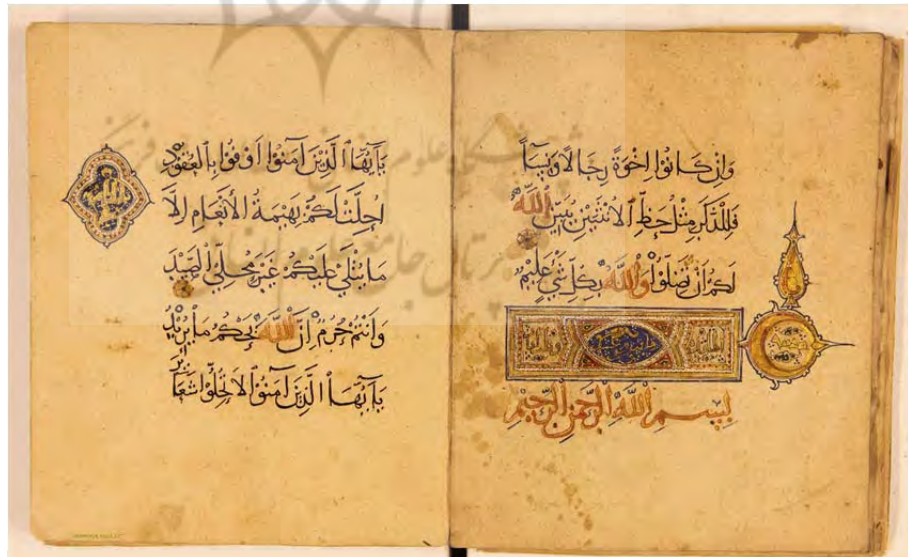 وَإِن كَانُوا إِخْوَةً رِجَالًا وَنِسَاءً
فَلِلذَّكَرِ مِثْلُ حَظِّ الْأُنْثَيَيْنِ يُبَيِّنُ اللَّهُ
لَكُمْ أَنْ تَضِلُّوا وَاللَّهُ بِكُلِّ شَيْءٍ عَلِيمٌ
بِسْمِ اللَّهِ الرَّحْمَنِ الرَّحِيمِ
يَا أَيُّهَا الَّذِينَ آمَنُوا أَوْفُوا بِالْعُقُودِ
أُحِلَّتْ لَكُمْ بَهِيمَةُ الْأَنْعَامِ إِلَّا
مَا يُتْلَى عَلَيْكُمْ غَيْرَ مُحِلِّي الصَّيْدِ
وَأَنْتُمْ حُرُمٌ إِنَّ اللَّهَ يَحْكُمُ مَا يُرِيدُ
يَا أَيُّهَا الَّذِينَ آمَنُوا لَا تُحِلُّوا شَعَا
پرتال جامع علوم انسانی